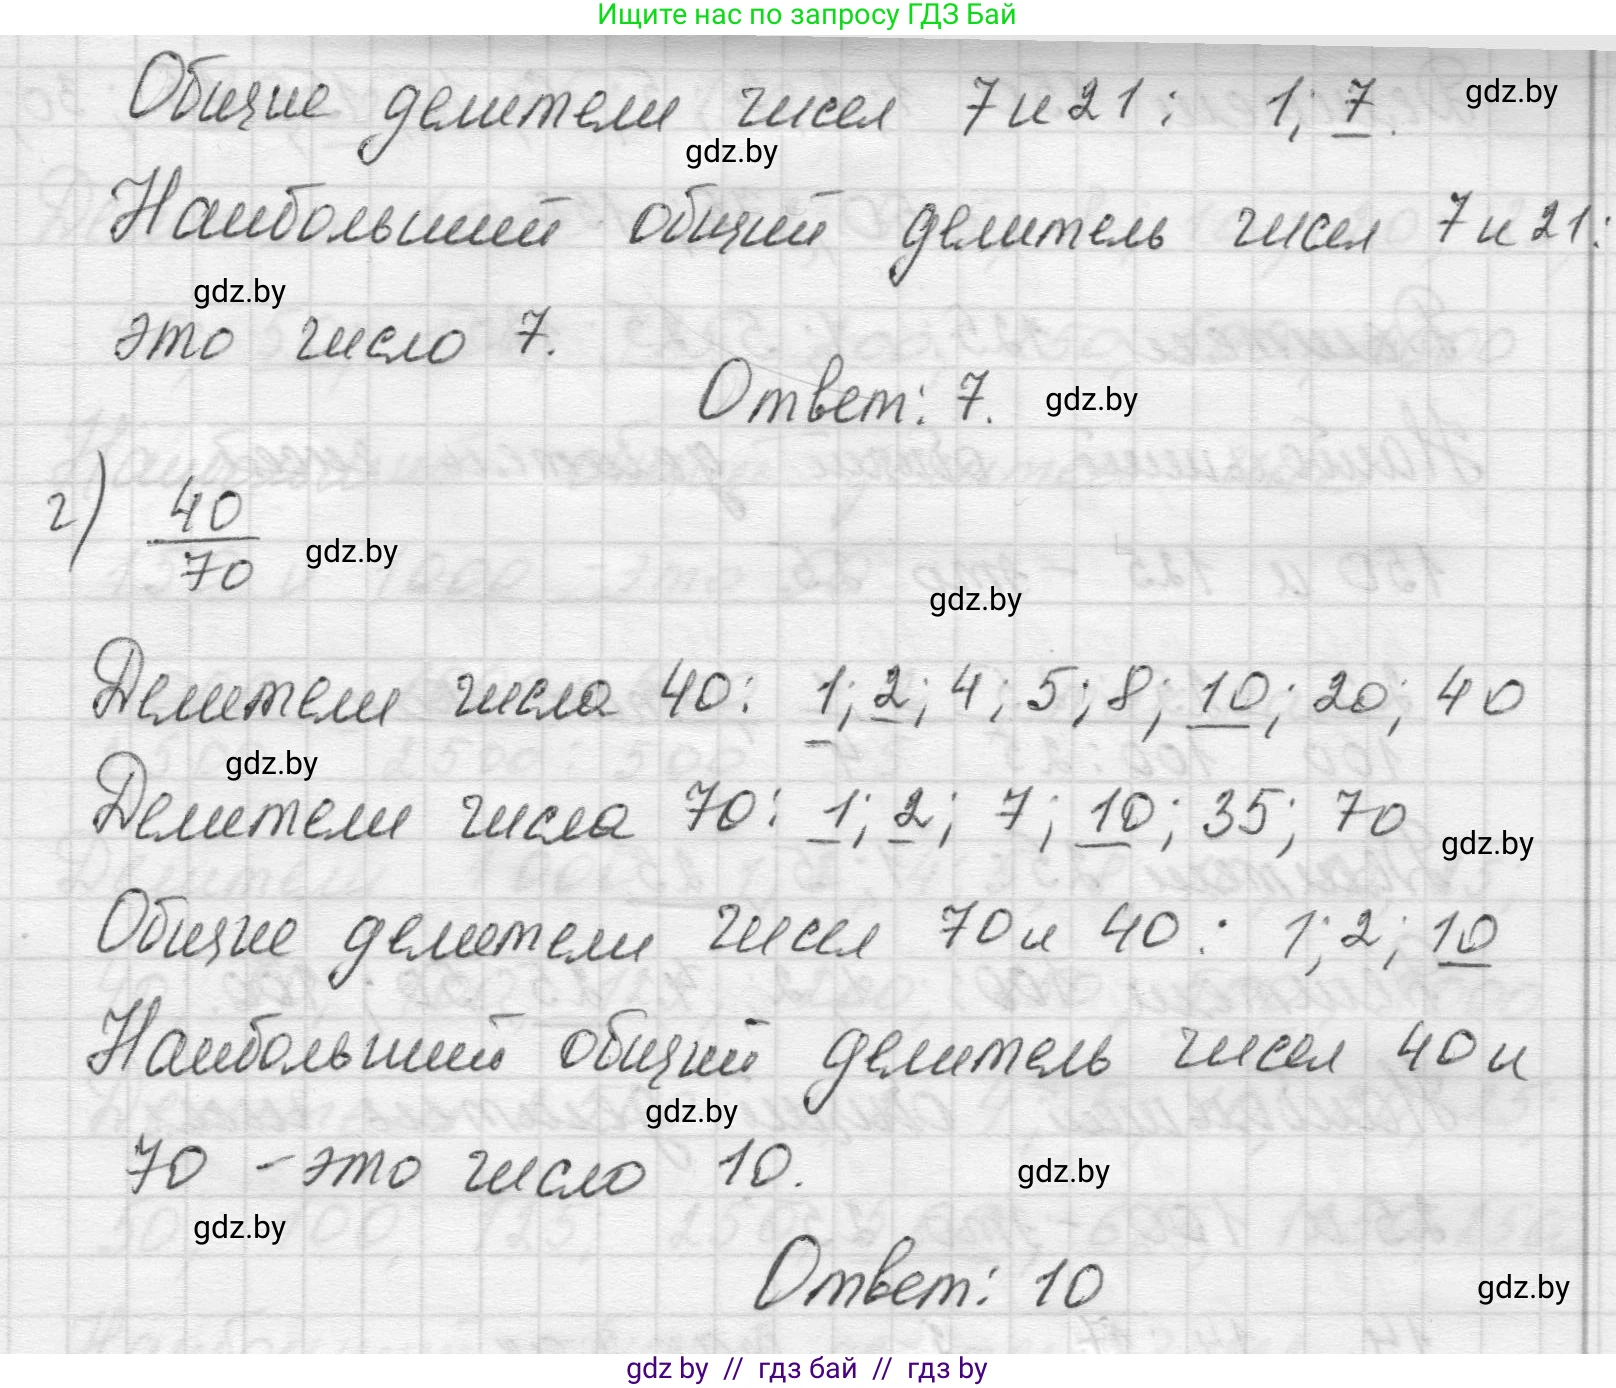 Ищите нас по запросу ГДЗ Бай
Общие делители чисел 7 и 21: 1; 7.
gdz.by
gdz.by
Наибольший общий делитель чисел 7 и 21:
gdz.by
это число 7.
Ответ: 7.
gdz.by
г) 40/70
gdz.by
gdz.by
Делители числа 40: 1; 2; 4; 5; 8; 10; 20; 40
gdz.by
Делители числа 70: 1; 2; 7; 10; 35; 70
gdz.by
Общие делители чисел 70 и 40: 1; 2; 10
Наибольший общий делитель чисел 40 и
gdz.by
70 - это число 10.
gdz.by
gdz.by
Ответ: 10
gdz.by
gdz by // гдз бай // гдз by